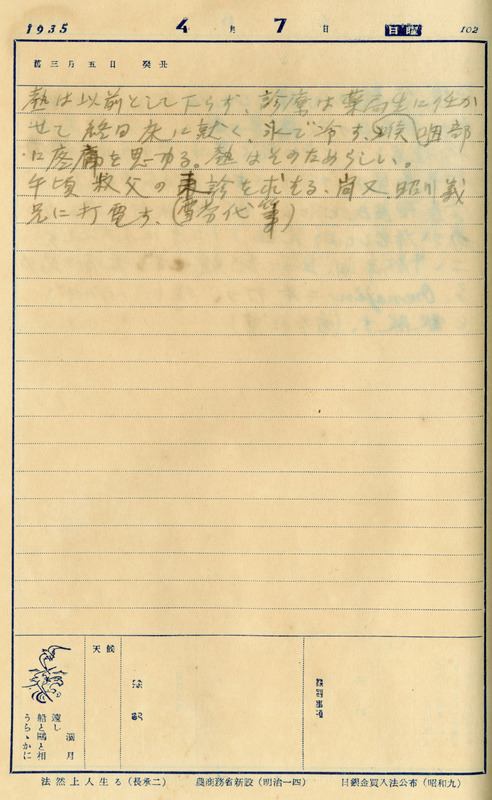 1935 4月7日 日曜 102
舊三月五日 癸丑
熱は以前として下らず、診療は薬局生に任か
せて終日床に就く、氷で冷す、喉咽部
に疼痛を思ゆる。熱はそのためらしい。
午頃叔父の来診を求むる、尚又、昭川義
兄に打電す、(雪芬代筆)
天候
遠し 湖月
船と鷗と相
うらゝかに
法然上人生る(長承二)
農商務省新設(明治一四)
日銀金買入法公布(昭和九)